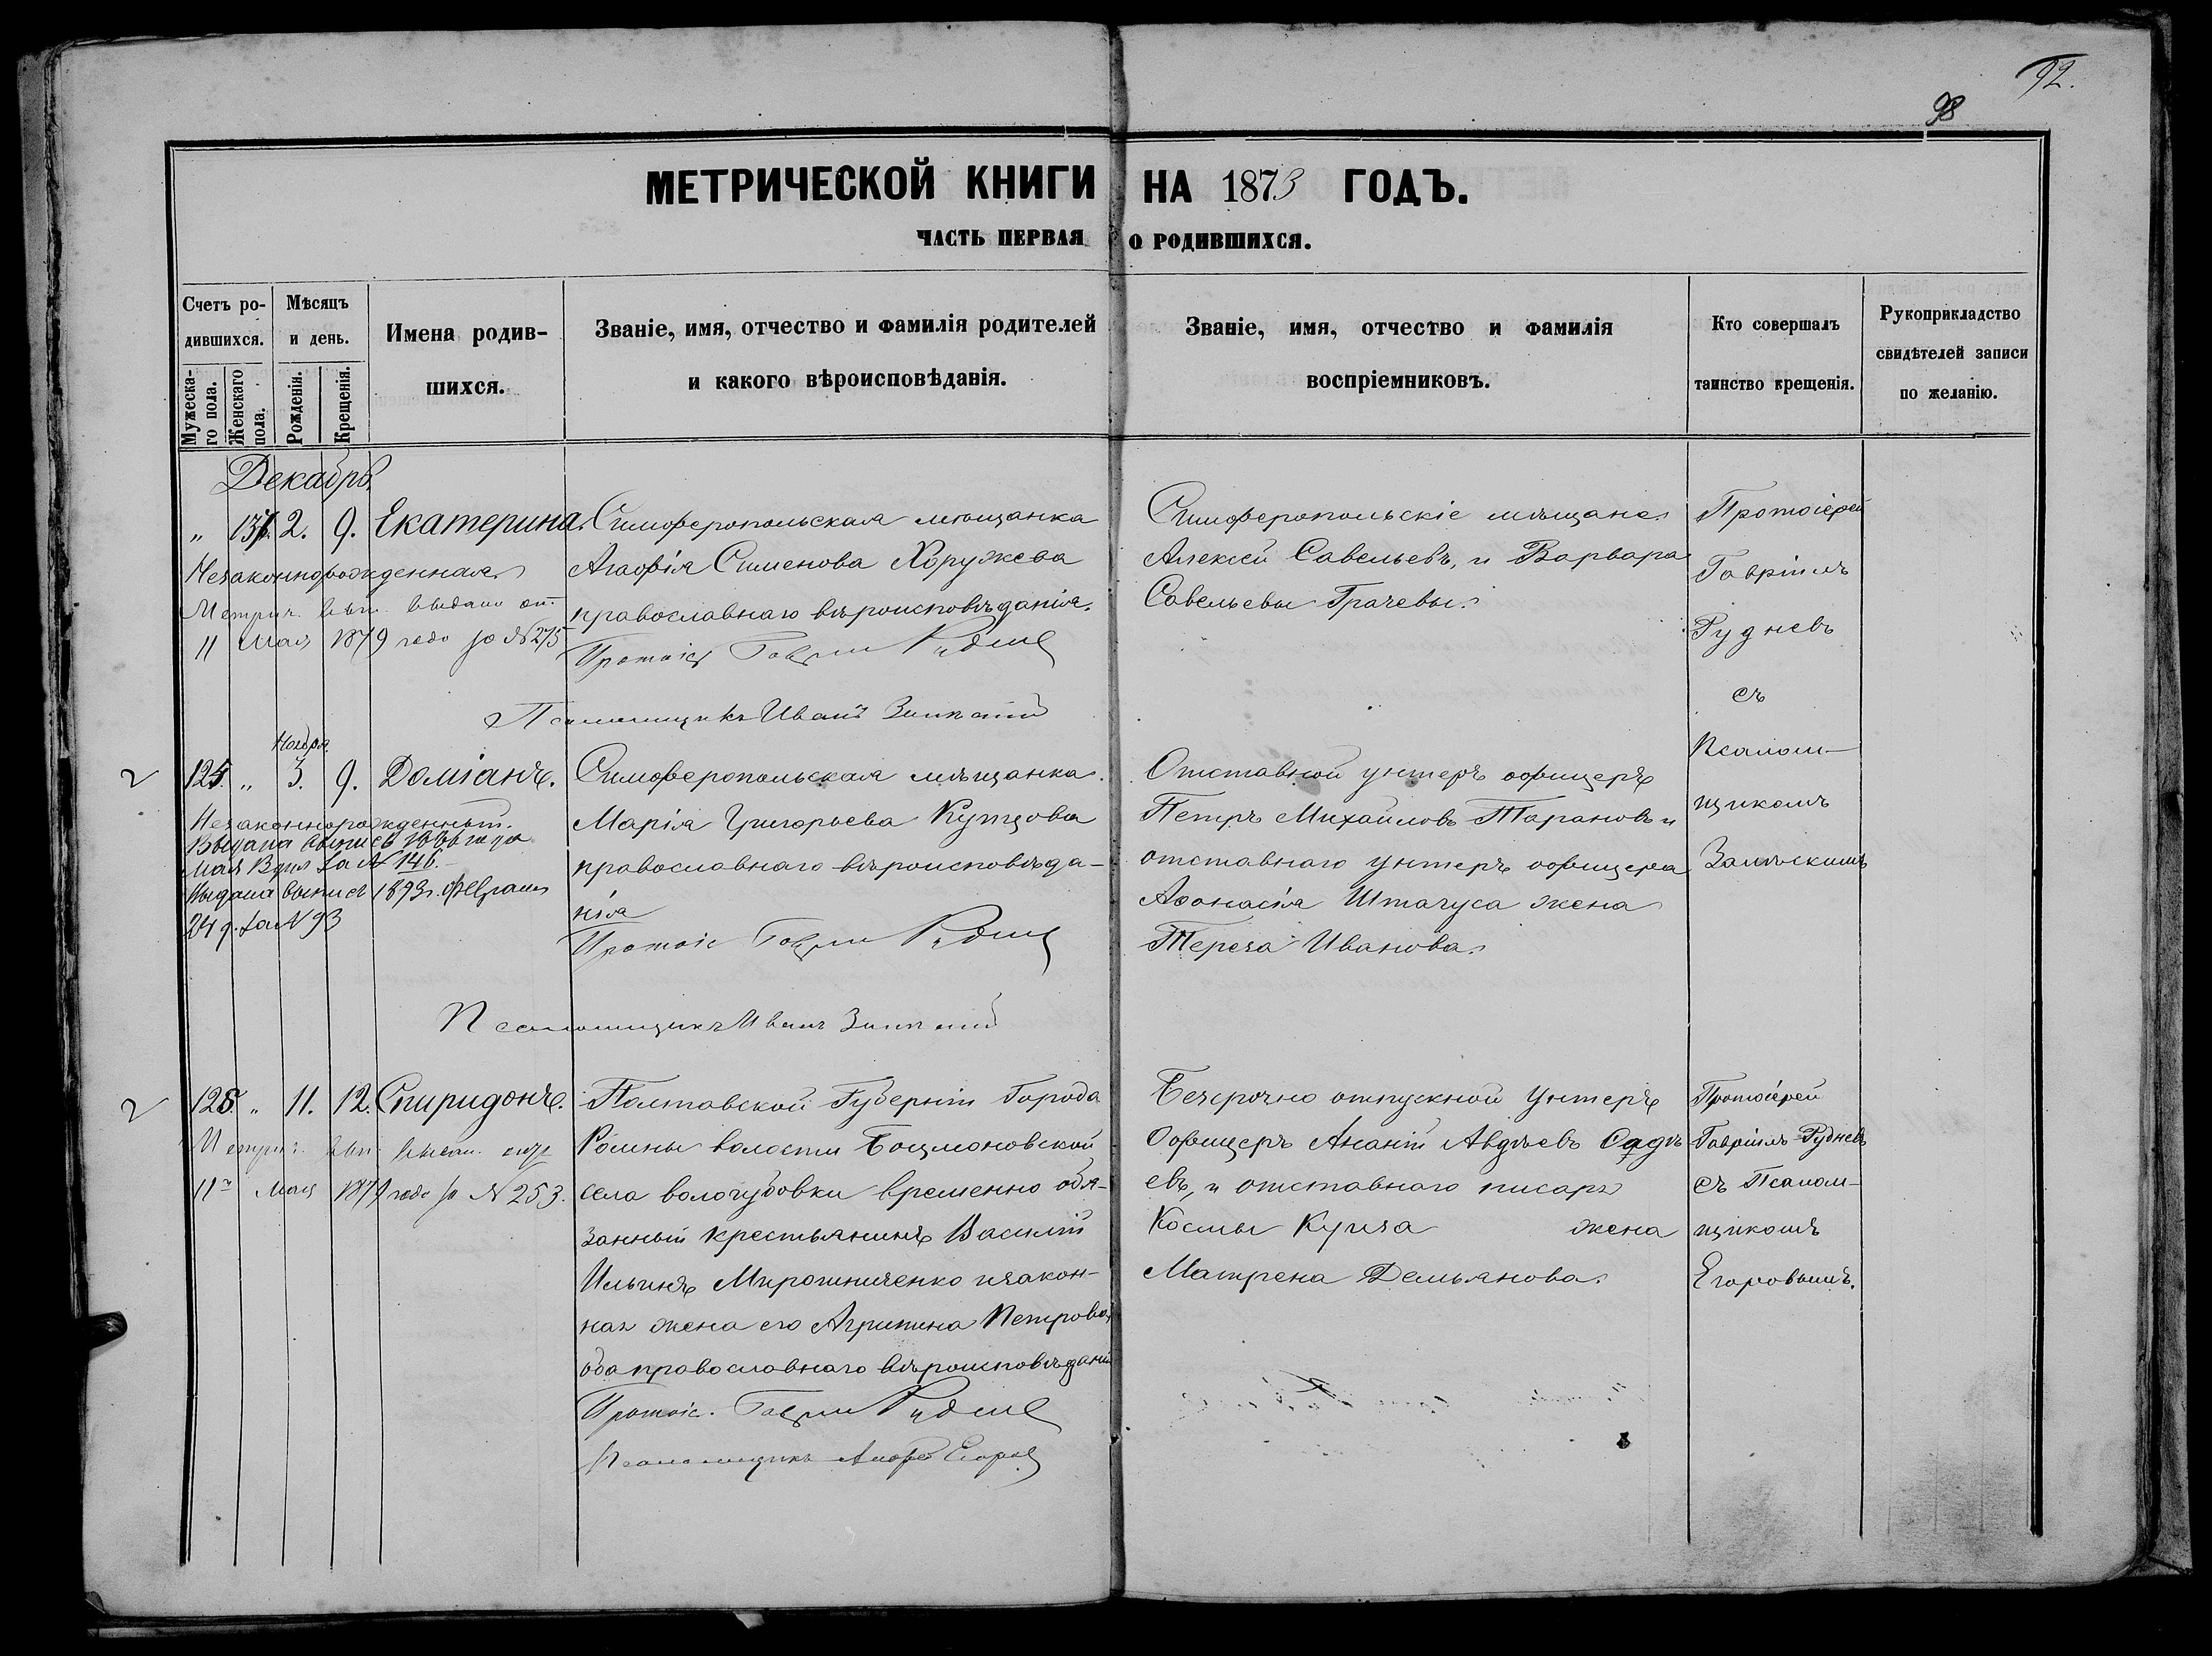 92.
98
МЕТРИЧЕСКОЙ КНИГИ НА 1873 ГОДЪ.
ЧАСТЬ ПЕРВАЯ О РОДИВШИХСЯ.
Счетъ ро-
дившихся.
Мужеска-
го пола.
Женскаго
пола.
Мѣсяцъ
и день.
Рожденія.
Крещенія.
Имена родив-
шихся.
Званіе, имя, отчество и фамилія родителей
и какого вѣроисповѣданія.
Званіе, имя, отчество и фамилія
воспріемниковъ.
Кто совершалъ
таинство крещенія.
Рукоприкладство
свидѣтелей записи
по желанію.
Декабрь.
„ 2. 9. Екатерина.
Незаконнорожденная
Метрич. вып. выдана
11 Мая 1879 года за № 275
Симферопольская мѣщанка
Агафія Сименова Хоружева
православнаго вѣроисповѣданія.
Протоіер Гавріи Руднев
Псаломщикъ Иванъ
Симферопольскіе мѣщане
Алексѣй Савельевъ, и Варвара
Савельевы Грачевы.
Протоіерей
Гавріилъ
Рудневъ
съ
Псалом-
щикомъ
Ноября
2 125. „ 3. 9. Доміанъ.
Незаконнорожденный.
Выдана выпись
Мая за № 146.
Выдана выпись 1893 г. Февраля
24 д. за № 93
Симферопольская мѣщанка
Марія Григорьева Купцова
православнаго вѣроисповѣда-
нія
Протоіе Гавріи Руднев
Псаломщикъ Иванъ
Отставной унтеръ офицеръ
Петръ Михайловъ Тарановъ и
отставнаго унтеръ офицера
Афонасія Штагуса жена
Тереза Иванова.
2 126 „ 11. 12. Спиридонъ.
Метрич. вып.
11 Мая 1879 года за № 253.
Полтавской Губерніи Города
Ромны волости Боцмоновской
села вологубовки временно обя-
занный крестьянинъ Василій
Ильинъ Мирошниченко изакон-
ная жена его Агрипина Петрова,
оба православнаго вѣроисповѣданія
Протоіе. Гавріи Руднев
Псаломщикъ Андрей Егоров
Безсрочно отпускной Унтеръ
Офицеръ Ананій Авдѣевъ Садѣ
евъ, и отставнаго писаря
Космы жена
Матрена Демьянова.
Протоіерей
Гавріилъ Рудневъ
съ Псалом-
щикомъ
Егоровымъ.